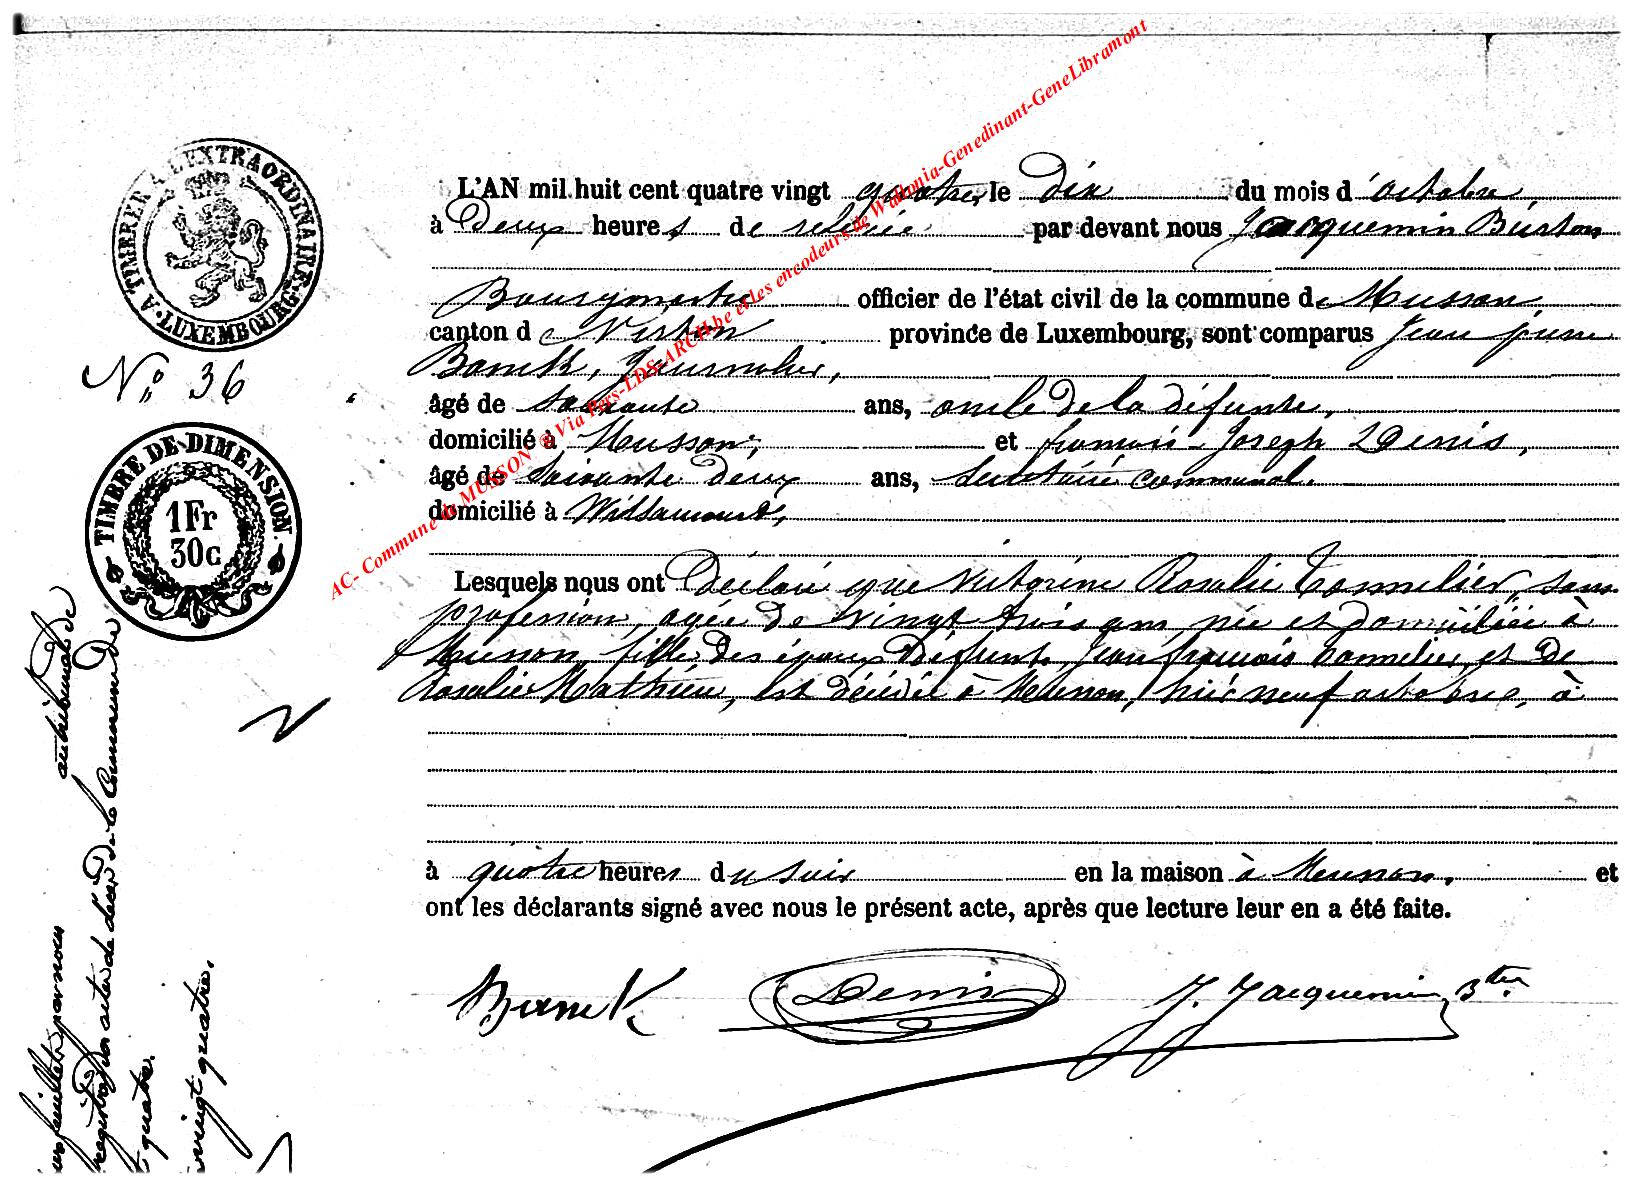 A TIMBRER A L'EXTRAORDINAIRE
LUXEMBOURG
N° 36
TIMBRE DE DIMENSION
1 Fr
30c
L'AN mil huit cent quatre vingt quatre, le Dix du mois d'octobre,
à Deux heures de relevée par devant nous Jacquemin Burton
Bourgmestre officier de l'état civil de la commune de Musson,
canton de Virton province de Luxembourg, sont comparus Jean pierre
Journalier,
âgé de soixante ans, oncle de la défunte,
domicilié à Musson, et françois Joseph Denis,
âgé de soixante deux ans, secrétaire communal.
domicilié à Willancourt,
Lesquels nous ont Déclaré que Victorine Rosalie Tonnelier, sans
profession, agée de vingt trois ans, née et domiciliée à
Musson, fille des époux défunts Jean françois Tonnelier, et de
Rosalie Mathieu, est décédée à Musson, hier neuf octobre, à
à quatre heures du soir en la maison à Musson. et
ont les déclarants signé avec nous le présent acte, après que lecture leur en a été faite.
Denis
J. Jacquemin
feuillets par nous
registre aux actes de décès de la Commune de
quatre.
vingt quatre.
AC- Commune de MUSSON ® Via Pers-LDS-ARCH.be et les encodeurs de Wallonia-Genedinant-GeneLibramont